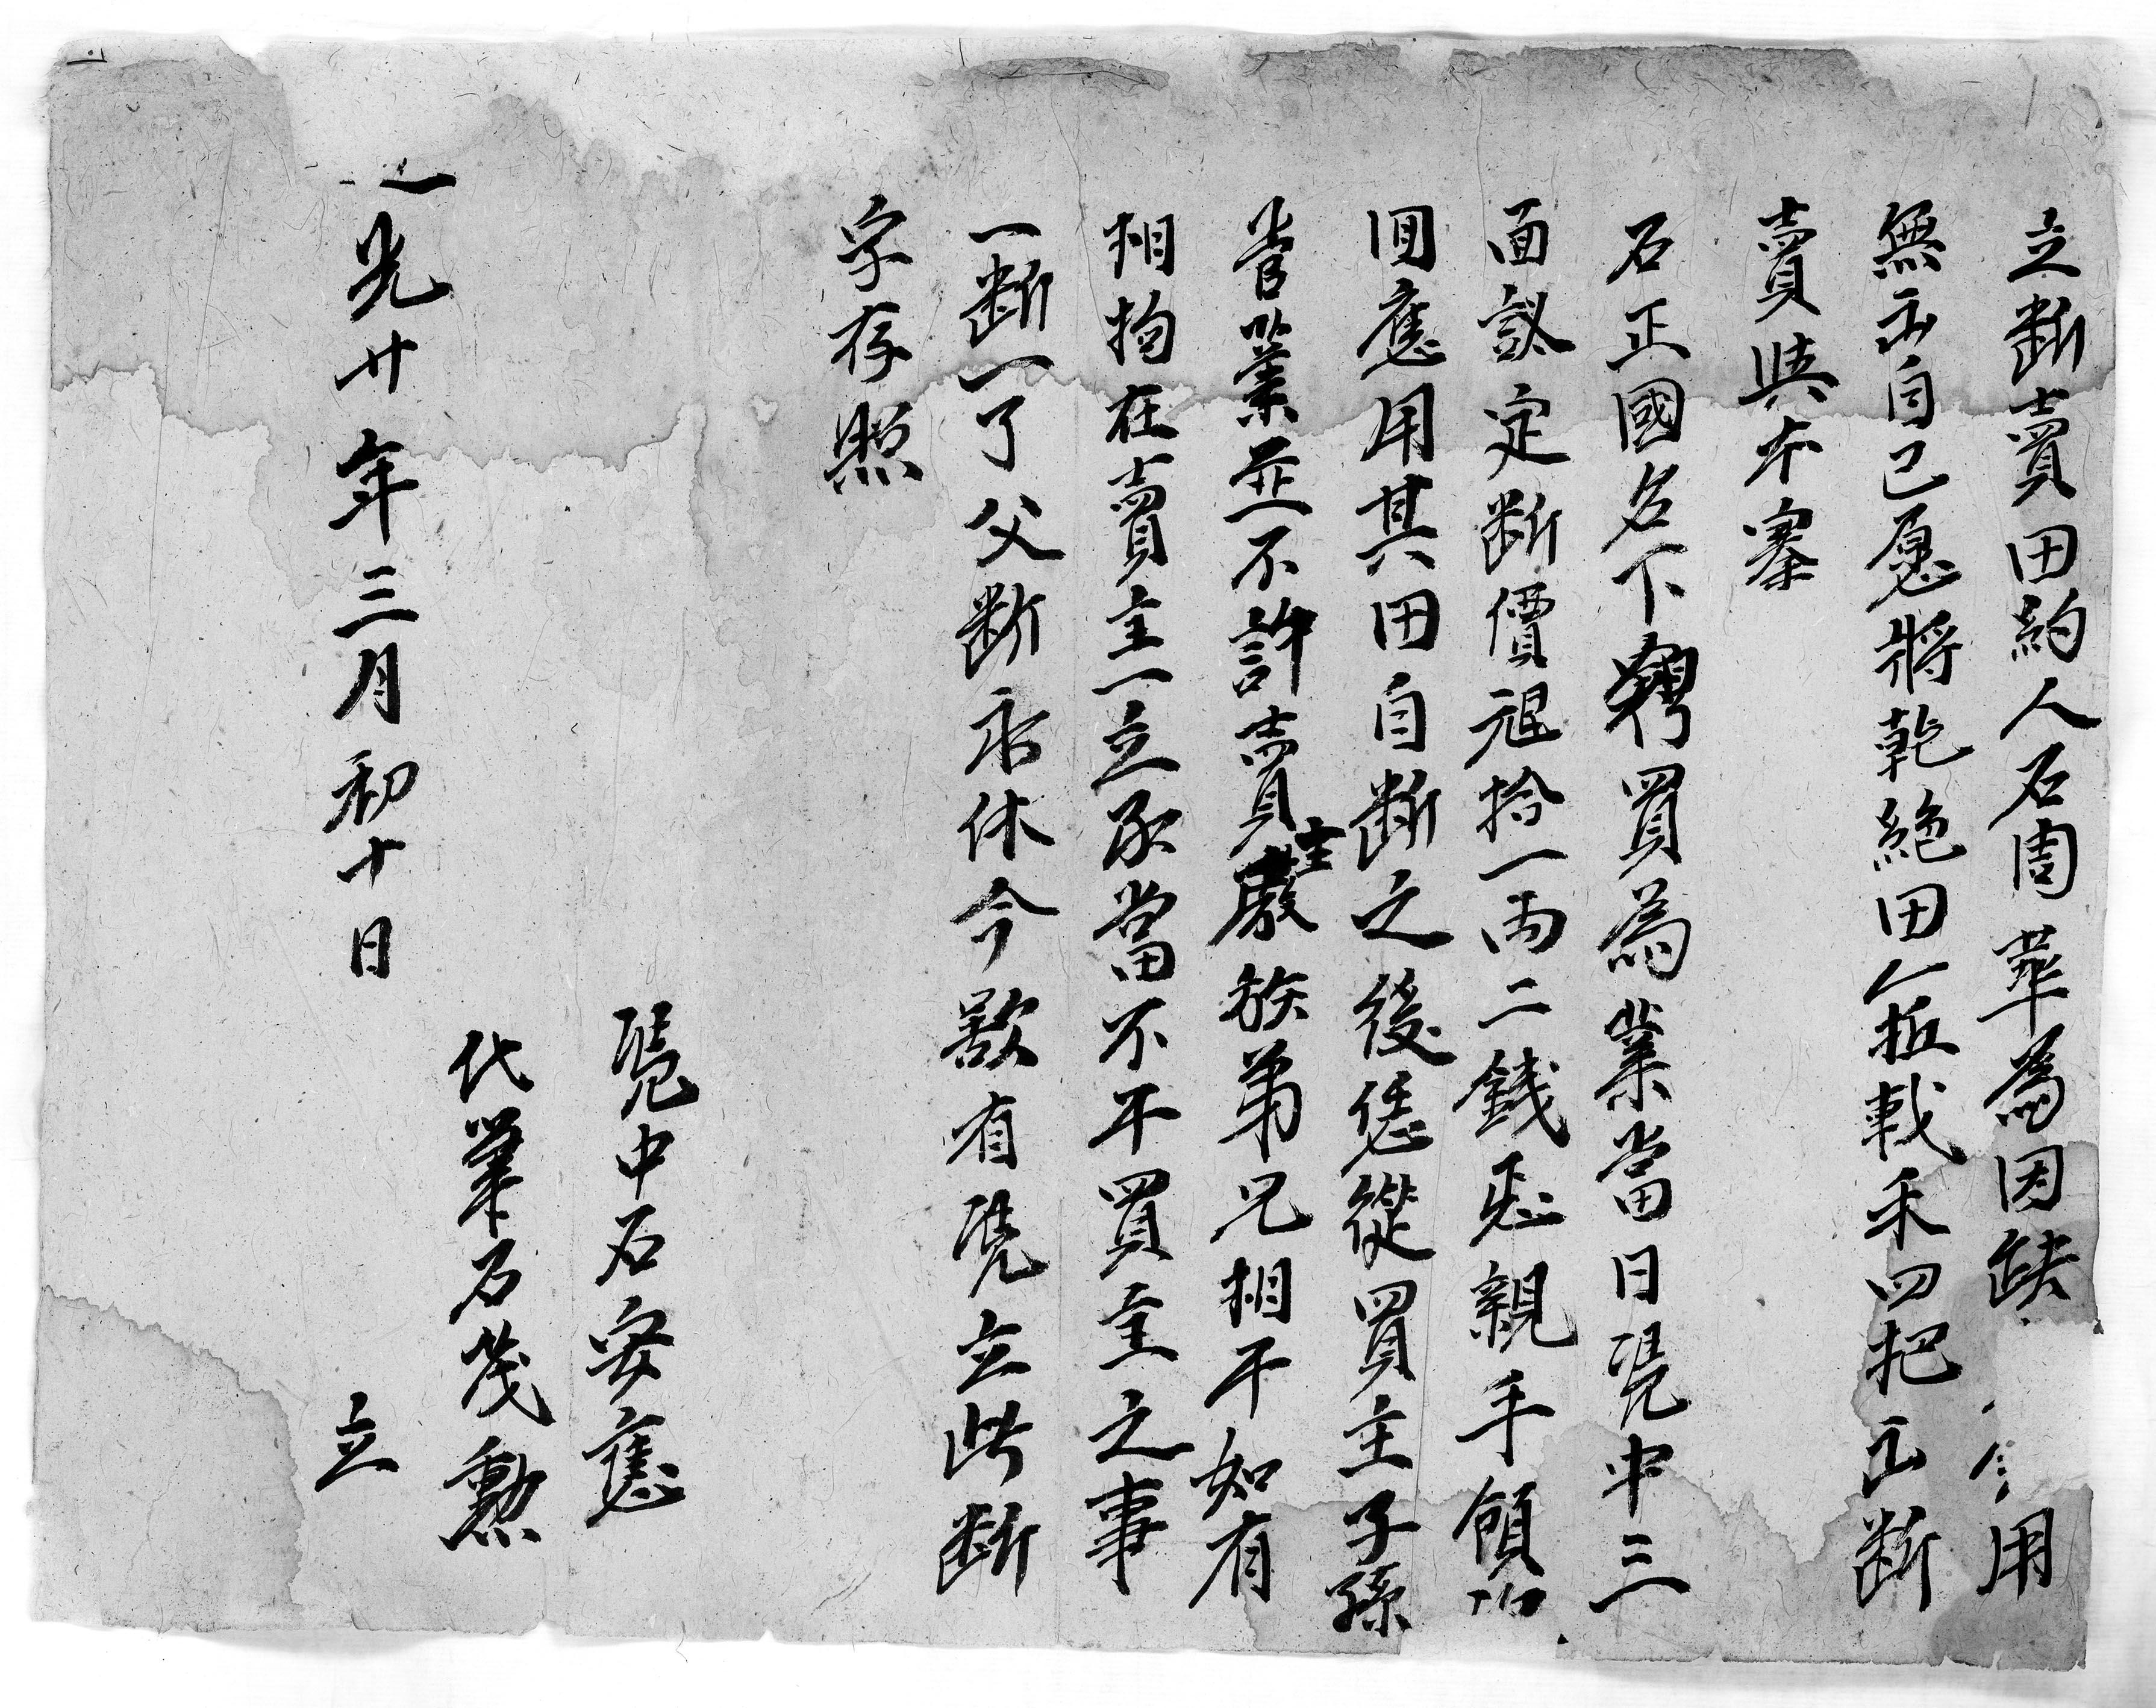 立断賣田約人石周華為因缺用
無出自己愿將乾絕田一坵載禾四把出断
賣與本寨
石正國名下 買為業當日凴中三
面議定断價艮拾一両二錢正親手領
回應用其田自断之後恁從買主子孫
管業並不許賣主 族弟兄相干如有
相拘在賣主一立承當不干買主之事
一断一了父断子休今欲有凴立此断
字存照
凴中石安應
代筆石茂勳
道光廿年三月初十日 立